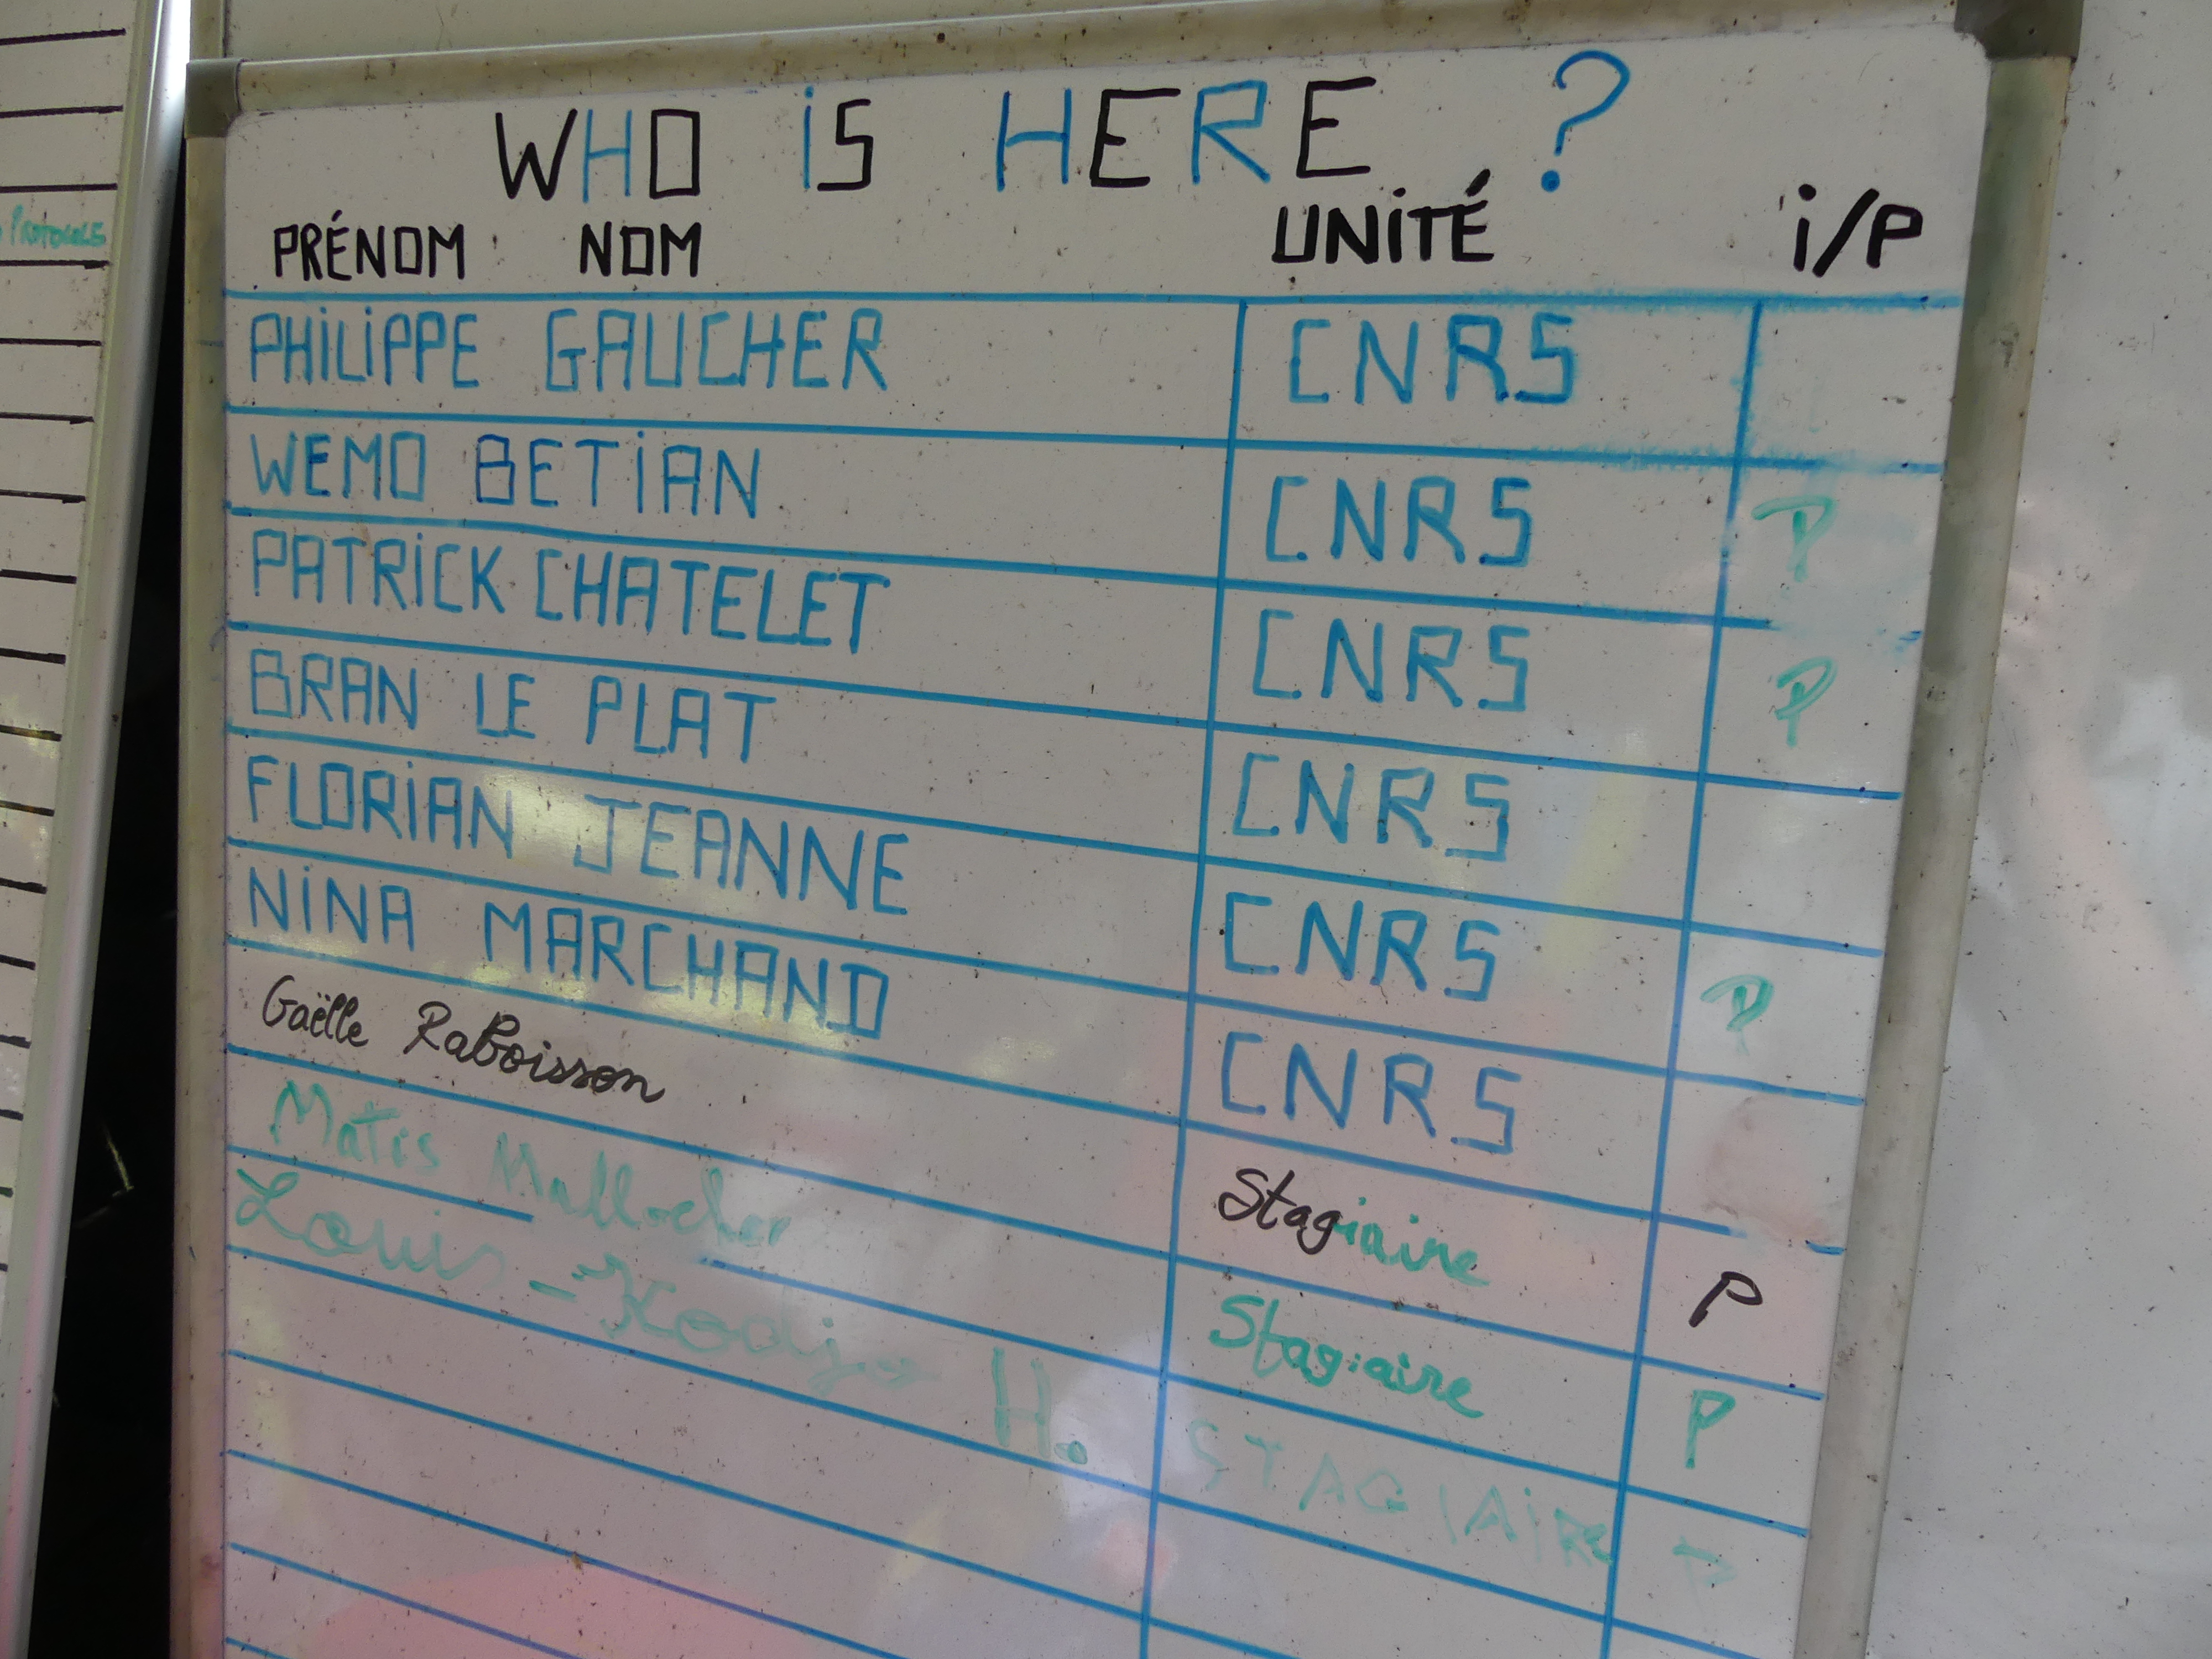 Protocoles
WHO iS HERE ?
PRÉNOM NOM UNiTÉ i/P
PHiLiPPE GAUCHER CNRS
WEMO BETiAN CNRS P
PATRiCK CHATELET CNRS P
BRAN LE PLAT CNRS
FLORiAN JEANNE CNRS P
NiNA MARCHAND CNRS
Gaëlle Raboisson Stagiaire P
Matis Stagiaire P
Louis-Kodjo H. STAGIAIRE P